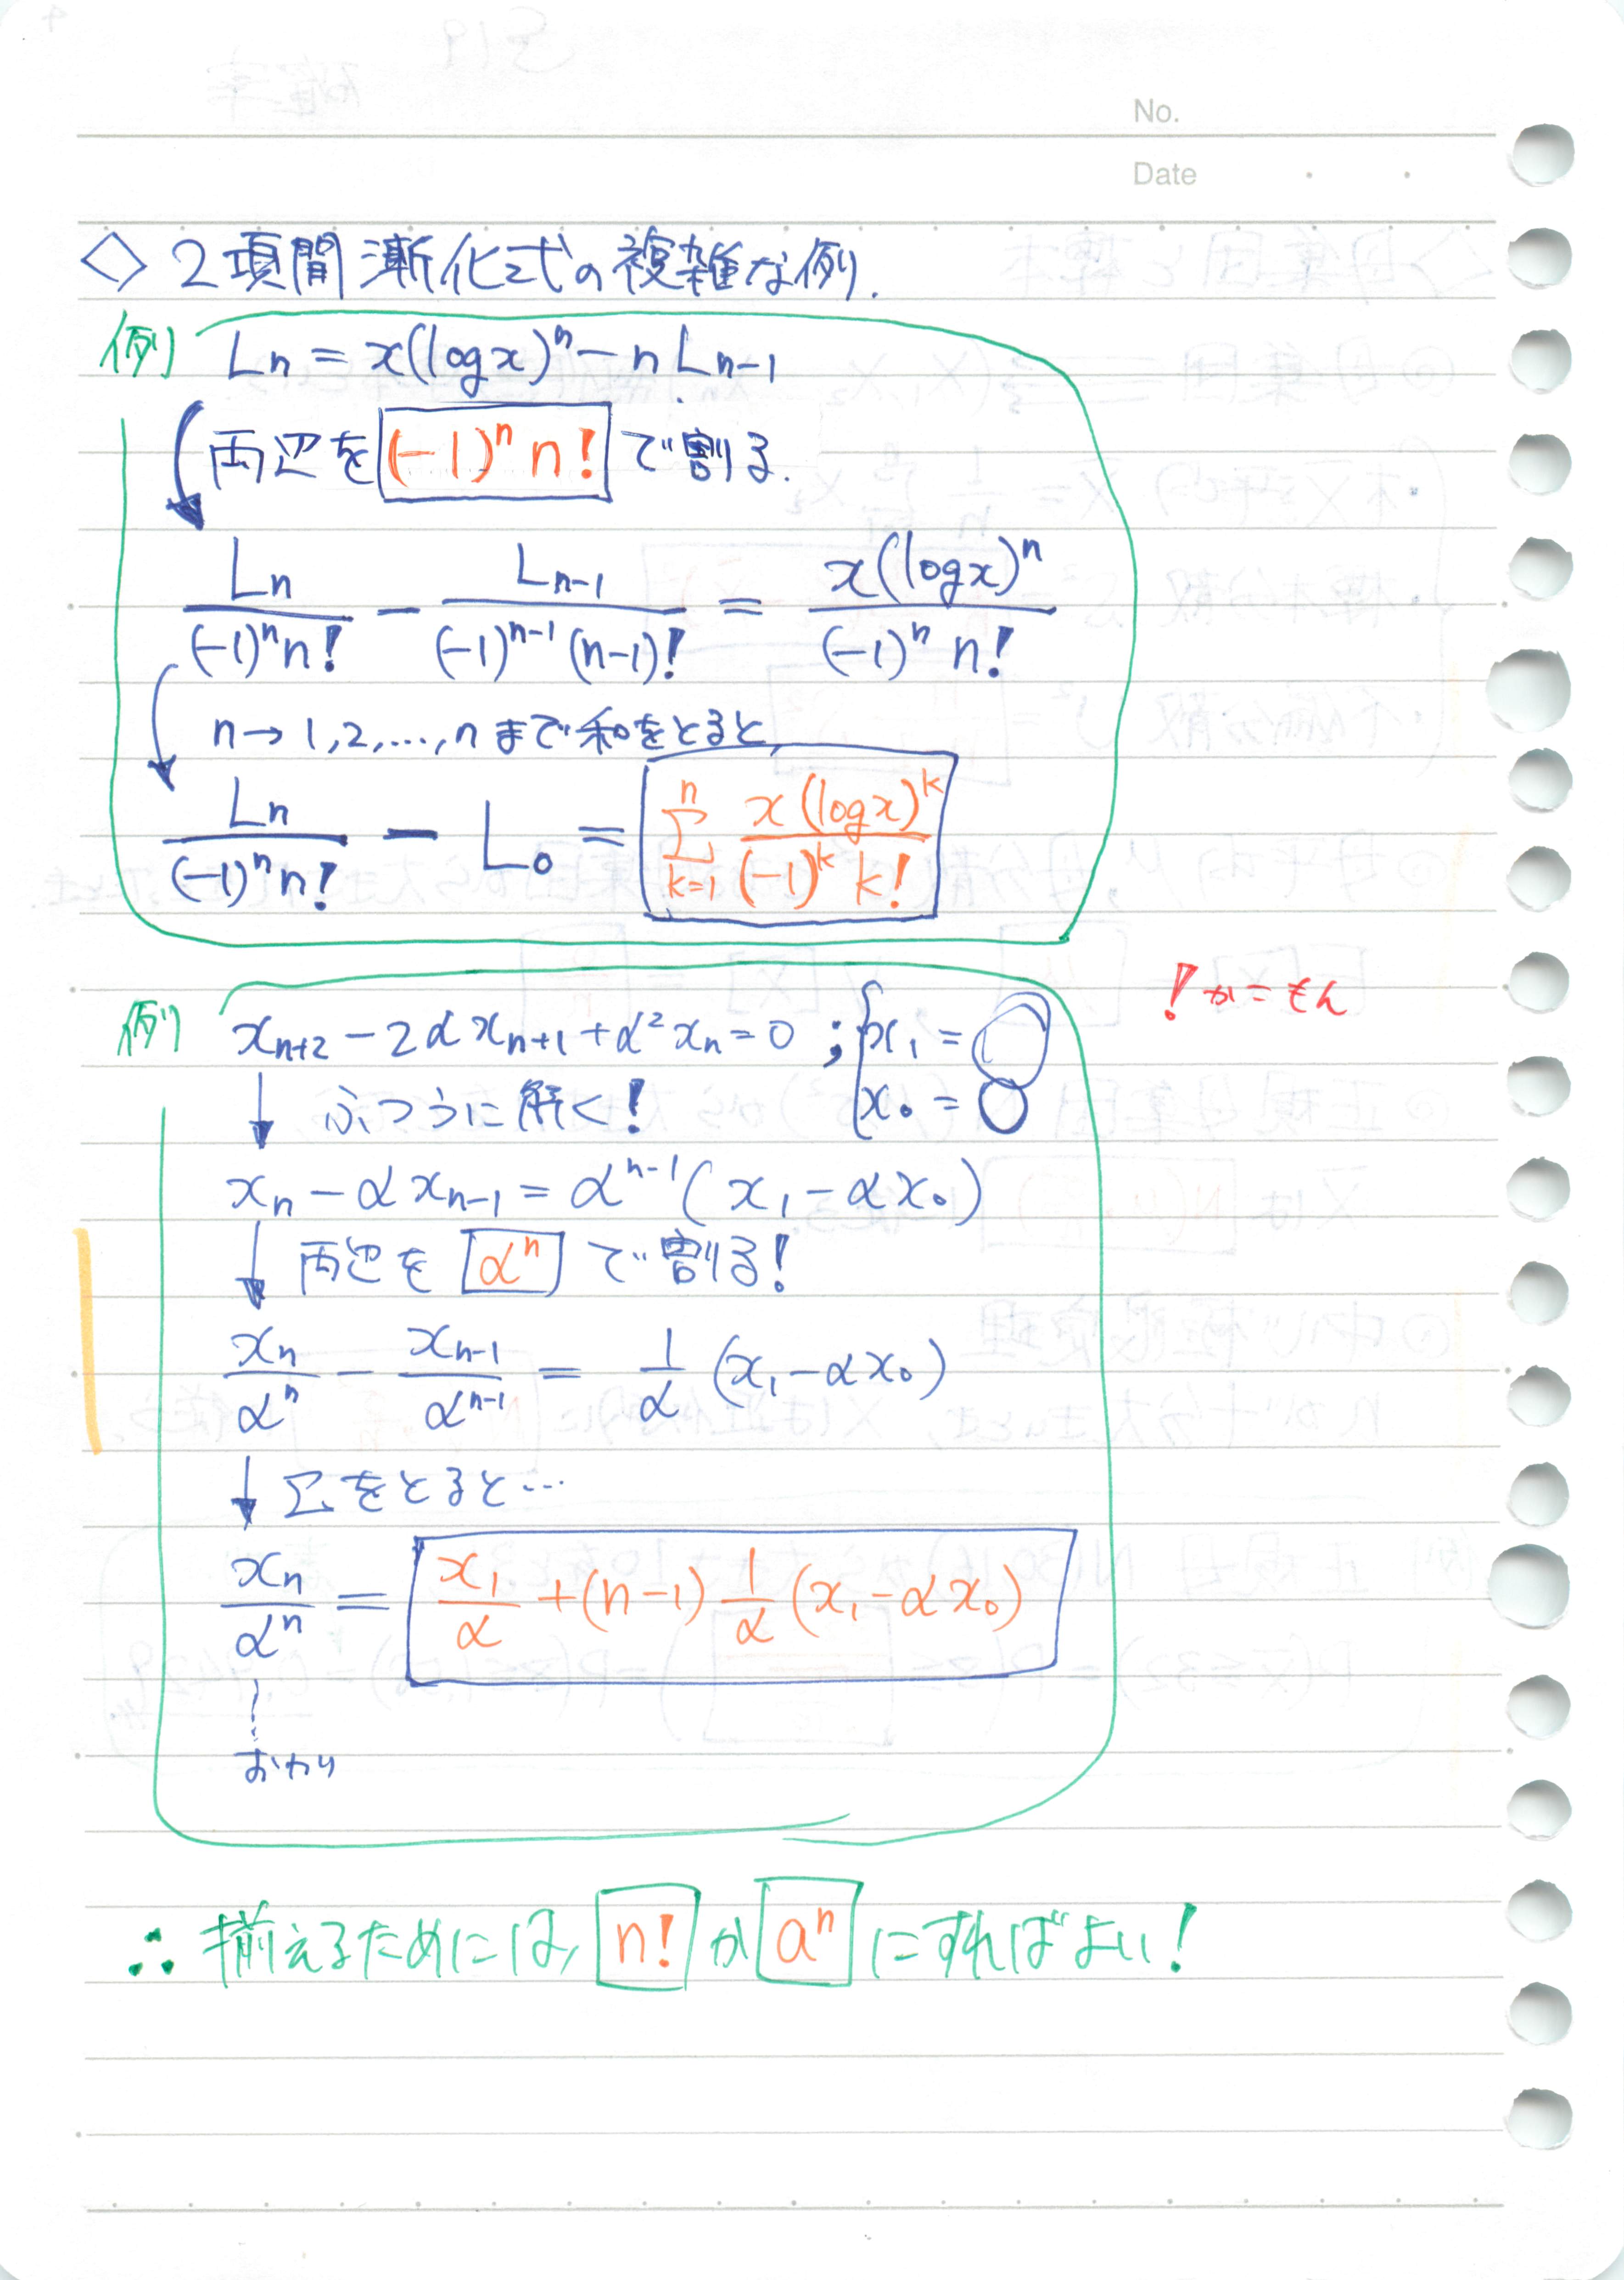 No.
Date
◇ 2項間漸化式の複雑な例.
例 Ln = x(logx)^n - n Ln-1
両辺を (-1)^n n! で割る.
Ln/((-1)^n n!) - Ln-1/((-1)^(n-1) (n-1)!) = x(logx)^n/((-1)^n n!)
n→1,2,…,nまで和をとると,
Ln/((-1)^n n!) - L₀ = Σ[k=1→n] x(logx)^k/((-1)^k k!)
! かこもん
例 xn+2 - 2αxn+1 + α²xn = 0 ; { x₁ = ○
x₀ = ○
↓ ふつうに解く!
xn - αxn-1 = α^(n-1)(x₁ - αx₀)
↓ 両辺を α^n で割る!
xn/α^n - xn-1/α^(n-1) = 1/α (x₁ - αx₀)
↓ Σをとると…
xn/α^n = x₁/α + (n-1) 1/α (x₁ - αx₀)
おわり
∴ 揃えるためには, n! か a^n にすればよい!